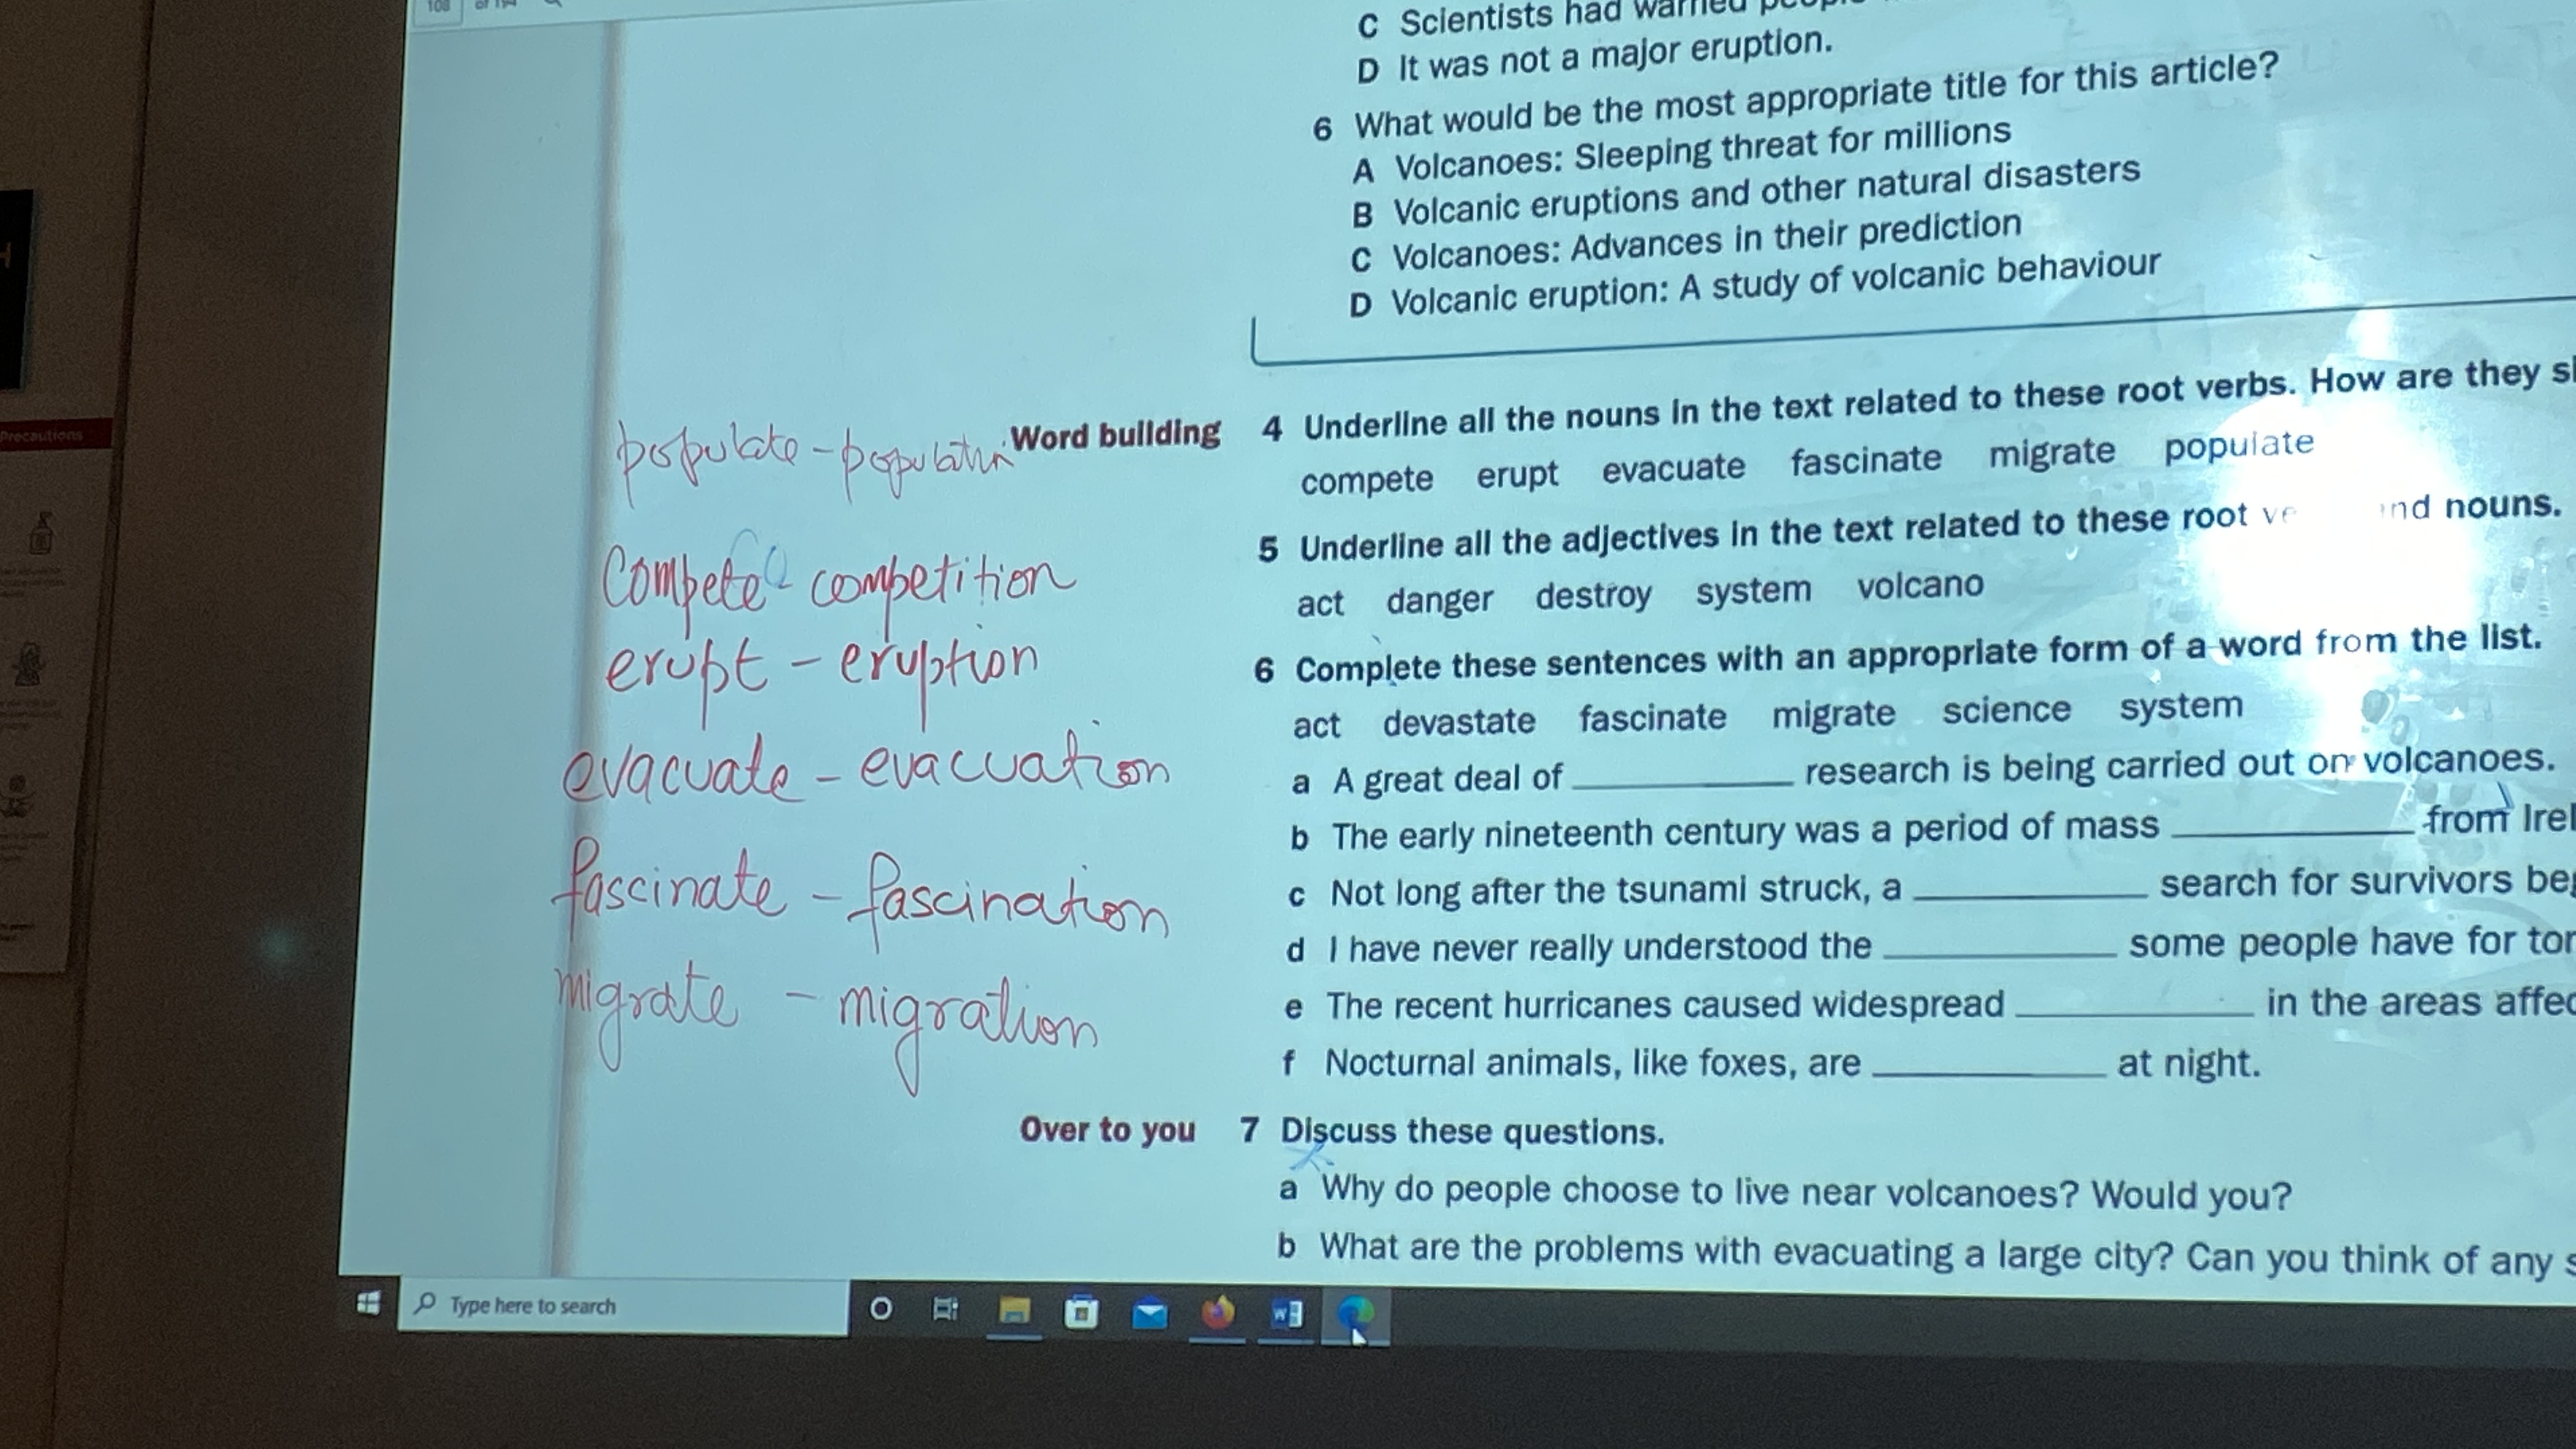 108 of 194
C Scientists had warned people
D It was not a major eruption.
6 What would be the most appropriate title for this article?
A Volcanoes: Sleeping threat for millions
B Volcanic eruptions and other natural disasters
C Volcanoes: Advances in their prediction
D Volcanic eruption: A study of volcanic behaviour
Word building
4 Underline all the nouns in the text related to these root verbs. How are they
compete erupt evacuate fascinate migrate populate
5 Underline all the adjectives in the text related to these root nouns.
act danger destroy system volcano
6 Complete these sentences with an appropriate form of a word from the list.
act devastate fascinate migrate science system
a A great deal of ____________ research is being carried out on volcanoes.
b The early nineteenth century was a period of mass ____________ from Irel
c Not long after the tsunami struck, a ____________ search for survivors beg
d I have never really understood the ____________ some people have for tor
e The recent hurricanes caused widespread ____________ in the areas affec
f Nocturnal animals, like foxes, are ____________ at night.
Over to you
7 Discuss these questions.
a Why do people choose to live near volcanoes? Would you?
b What are the problems with evacuating a large city? Can you think of any s
populate -
Compete - competition
erupt - eruption
evacuate - evacuation
fascinate - fascination
migrate - migration
Type here to search
Precautions